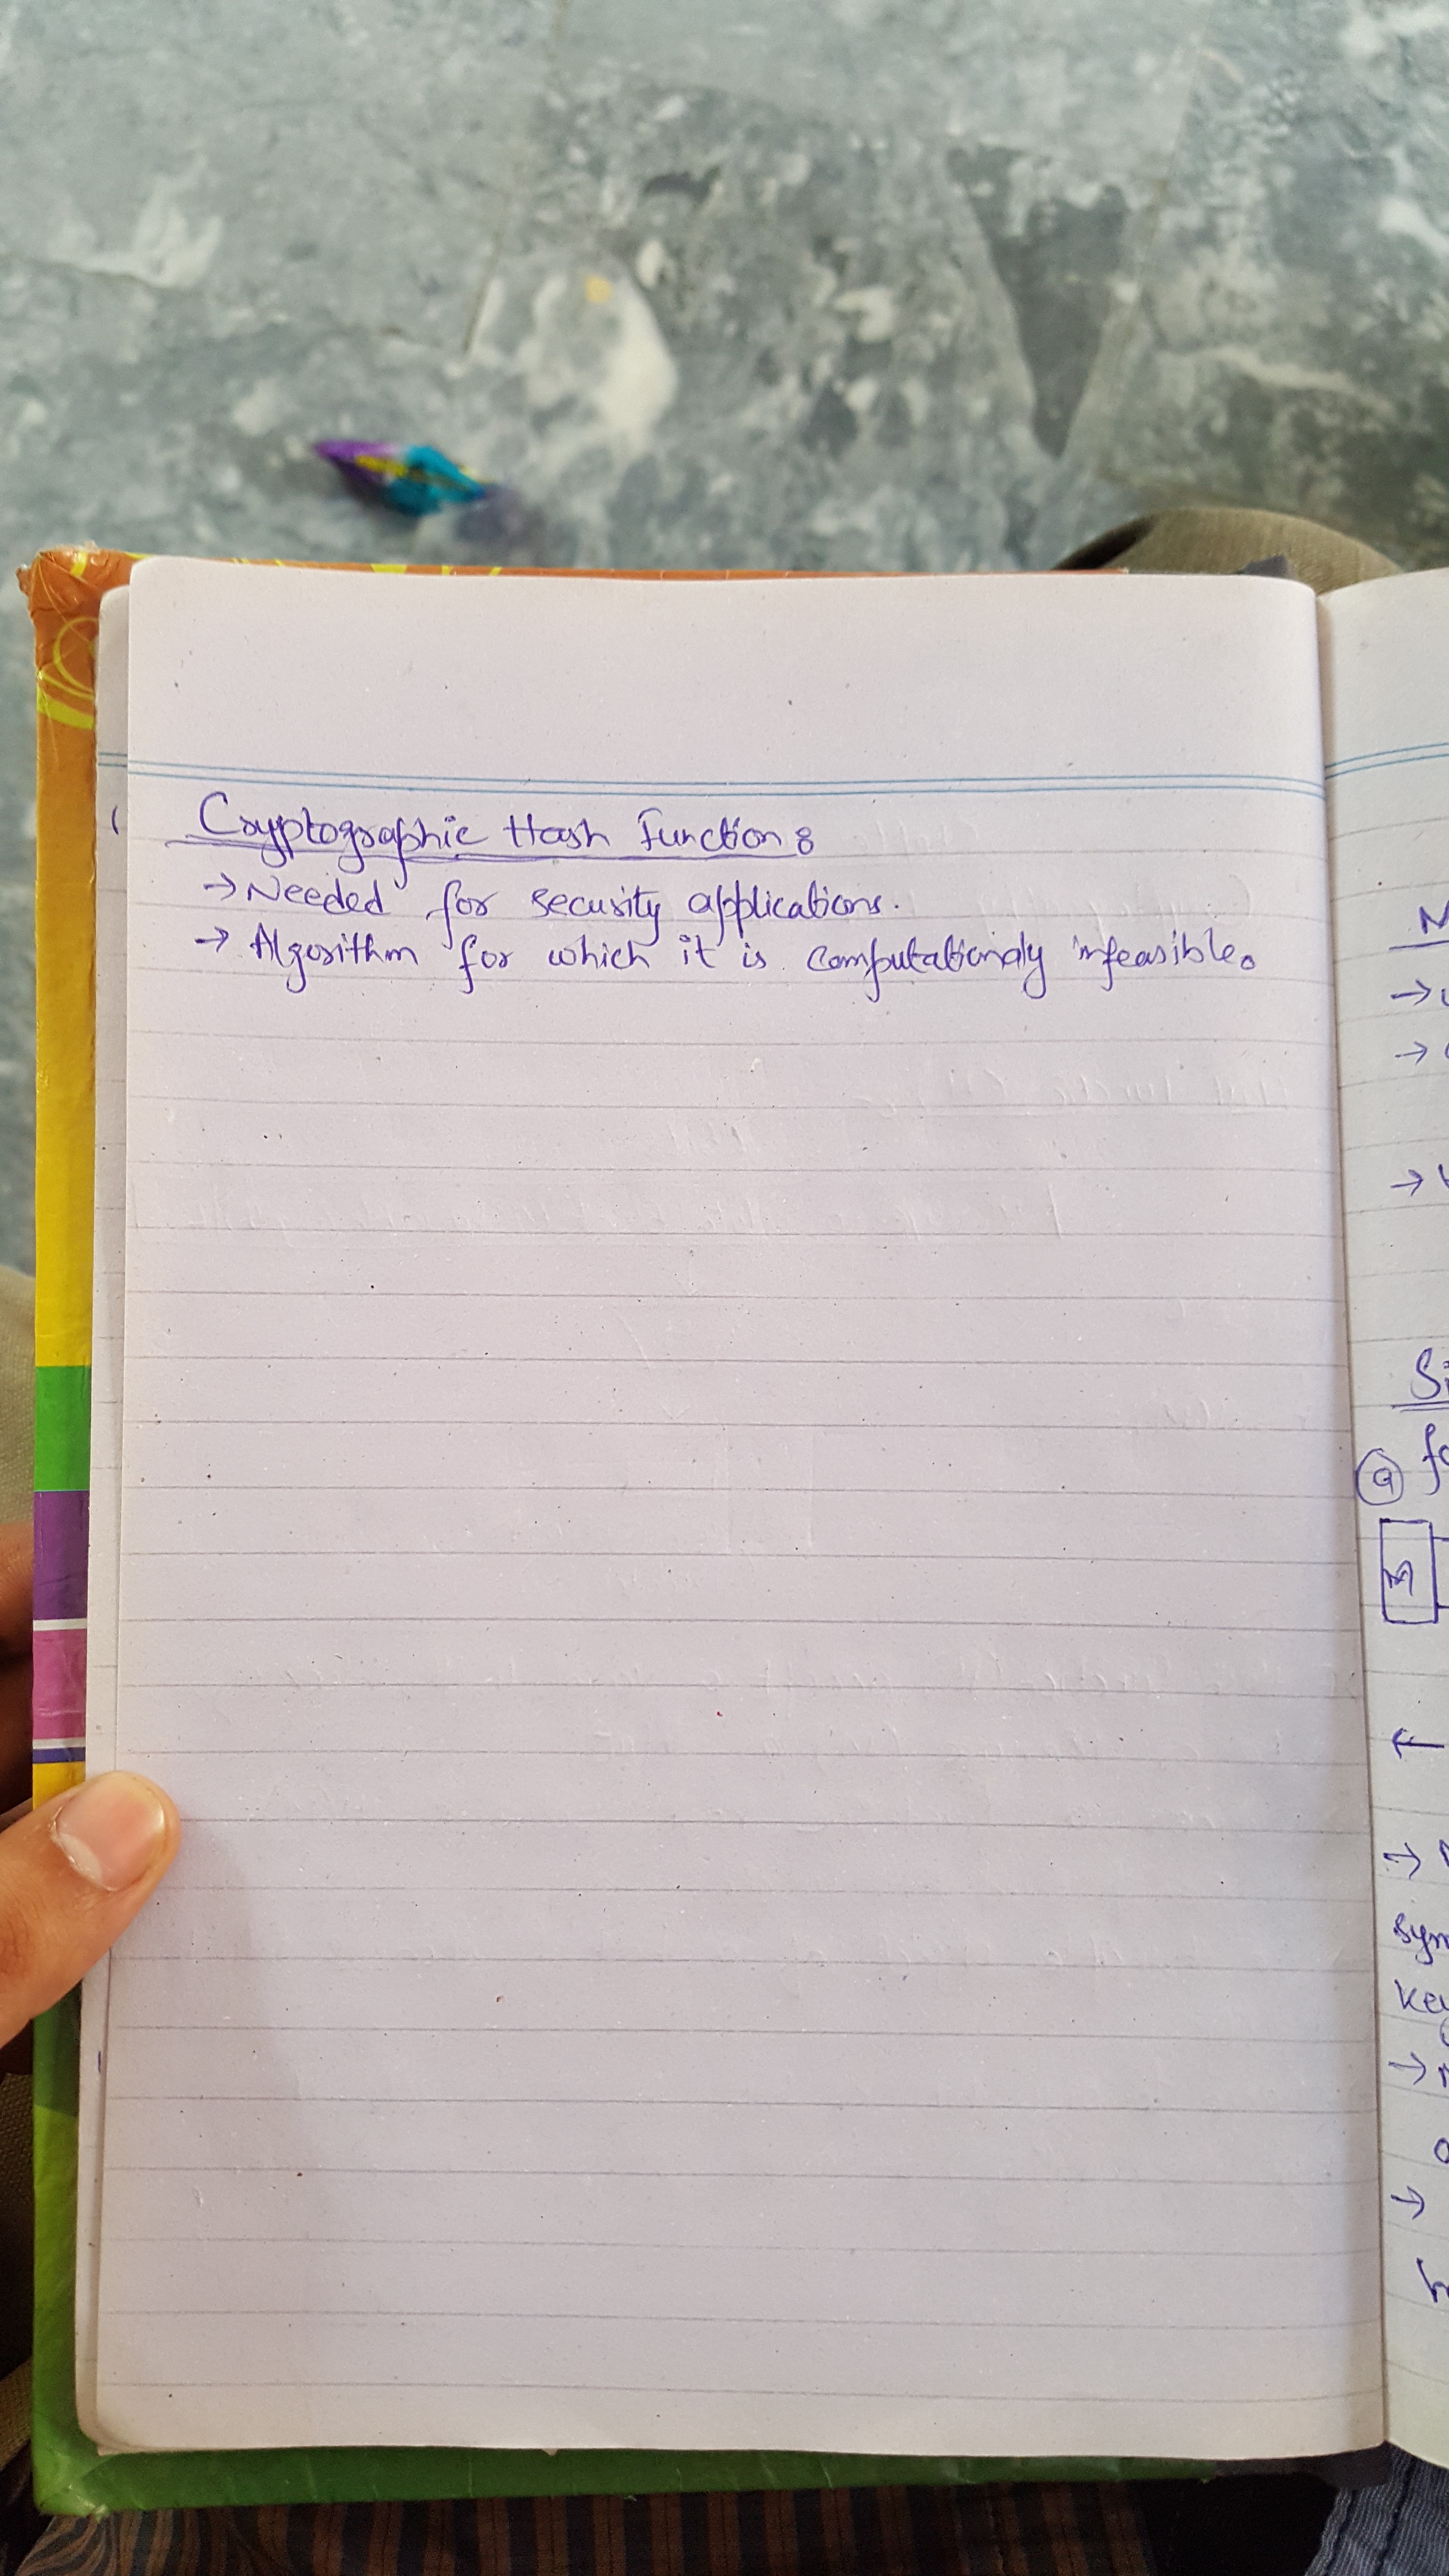 Cryptographic Hash Function :
→ Needed for security applications.
→ Algorithm for which it is computationaly infeasible.
→
→
→
Si
@ fo
M
←
→
Sym
key
→
→